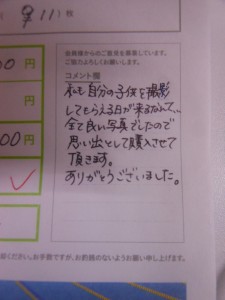 年11）1枚
00円
会員様からのご意見を募集しています。
ご協力よろしくお願いします。
コメント欄
私も自分の子供を撮影
してもらえる日が来るなんて、、
全て良い写真でしたので
思い出として購入させて
頂きます。
ありがとうございました。
円
00円
お手数ですが、お釣銭のないようお願い申し上げます。